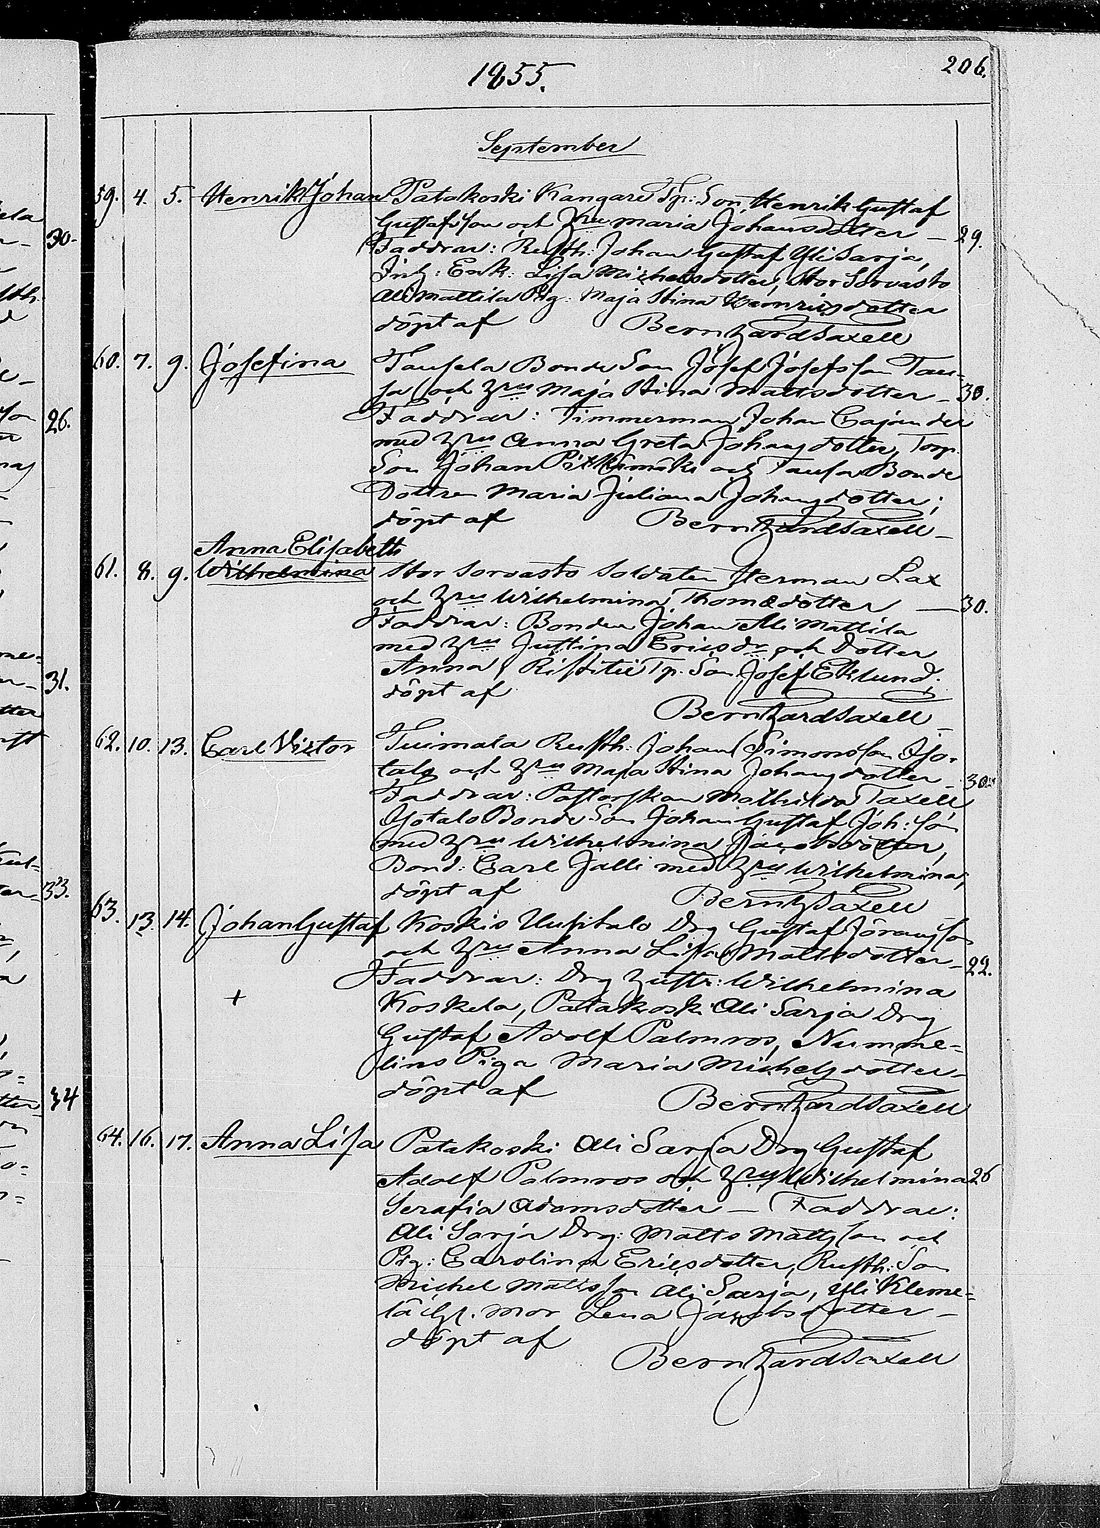 206.
1855.
September
59. 4. 5. Henrik Johan Patakoski Kangare Tp: Son, Henrik Gustaf
Gustafsson och Hru Maria Johansdotter — 29.
Faddrar: Rusth: Johan Gustaf Yli Sarja,
Enk: Lisa Michelsdotter, Stor Sorvasto
Ali Mattila Pig: Maja Stina Henricsdotter
döpt af Bernhard Taxell
60. 7. 9. Josefina Taufsla Bonde Son Josef Josefsson Tau-
sa och Hru Maja Stina Mattsdotter — 30.
Faddrar: Timmerman Johan Cajander
med Hru Anna Greta Johansdotter, Torp.
Son Johan och Taufsa Bonde
Dottren Maria Juliana Johansdotter;
döpt af Bernhard Taxell —
Anna Elisabeth
61. 8. 9. Wilhelmina Stor Sorvasto Soldaten Herman Lax
och Hru Wilhelmina Thomædotter — 30.
Faddrar: Bonden Johan Ali Mattila
med Hru Justina Ericsdr och Dotter
Anna, Tp. Son Josef Eklund.
döpt af
Bernhard Taxell
62. 10. 13. Carl Victor Tuimala Rusth: Johan Simonsson Ojo-
talo och Hru Maja Stina Johansdotter 30
Faddrar: Pastorskan Mathilda Taxell
Ojotalo Bonde Son Johan Gustaf Joh: son
med Hru Wilhelmina Jacobsdotter,
Bond: Carl Jalli med Hru Wilhelmina;
döpt af Bernh Taxell
63. 13. 14. Johan Gustaf Koskis Uusitalo Drg Gustaf Göransson
och Hru Anna Lisa Mattsdotter — 22.
Faddrar: Drg Hustr: Wilhelmina
+ Koskela, Patakoski Ali Sarja Drg
Gustaf Adolf Palmros, Numme-
lins Piga Maria Michelsdotter —
döpt af Bernhard Taxell
64. 16. 17. Anna Lisa Patakoski Ali Sarja Drg Gustaf
Adolf Palmros och Hru Wilhelmina 26
Serafia Adamsdotter — Faddrar:
Ali Sarja Drg: Matts Mattsson och
Pig: Carolina Ericsdotter, Rusth: Son
Michel Mattsson Ali Sarja, Yli Kleme-
lä Gl. Mor Lena Jacobsdotter —
döpt af
Bernhard Taxell
30.
26.
31.
33.
34